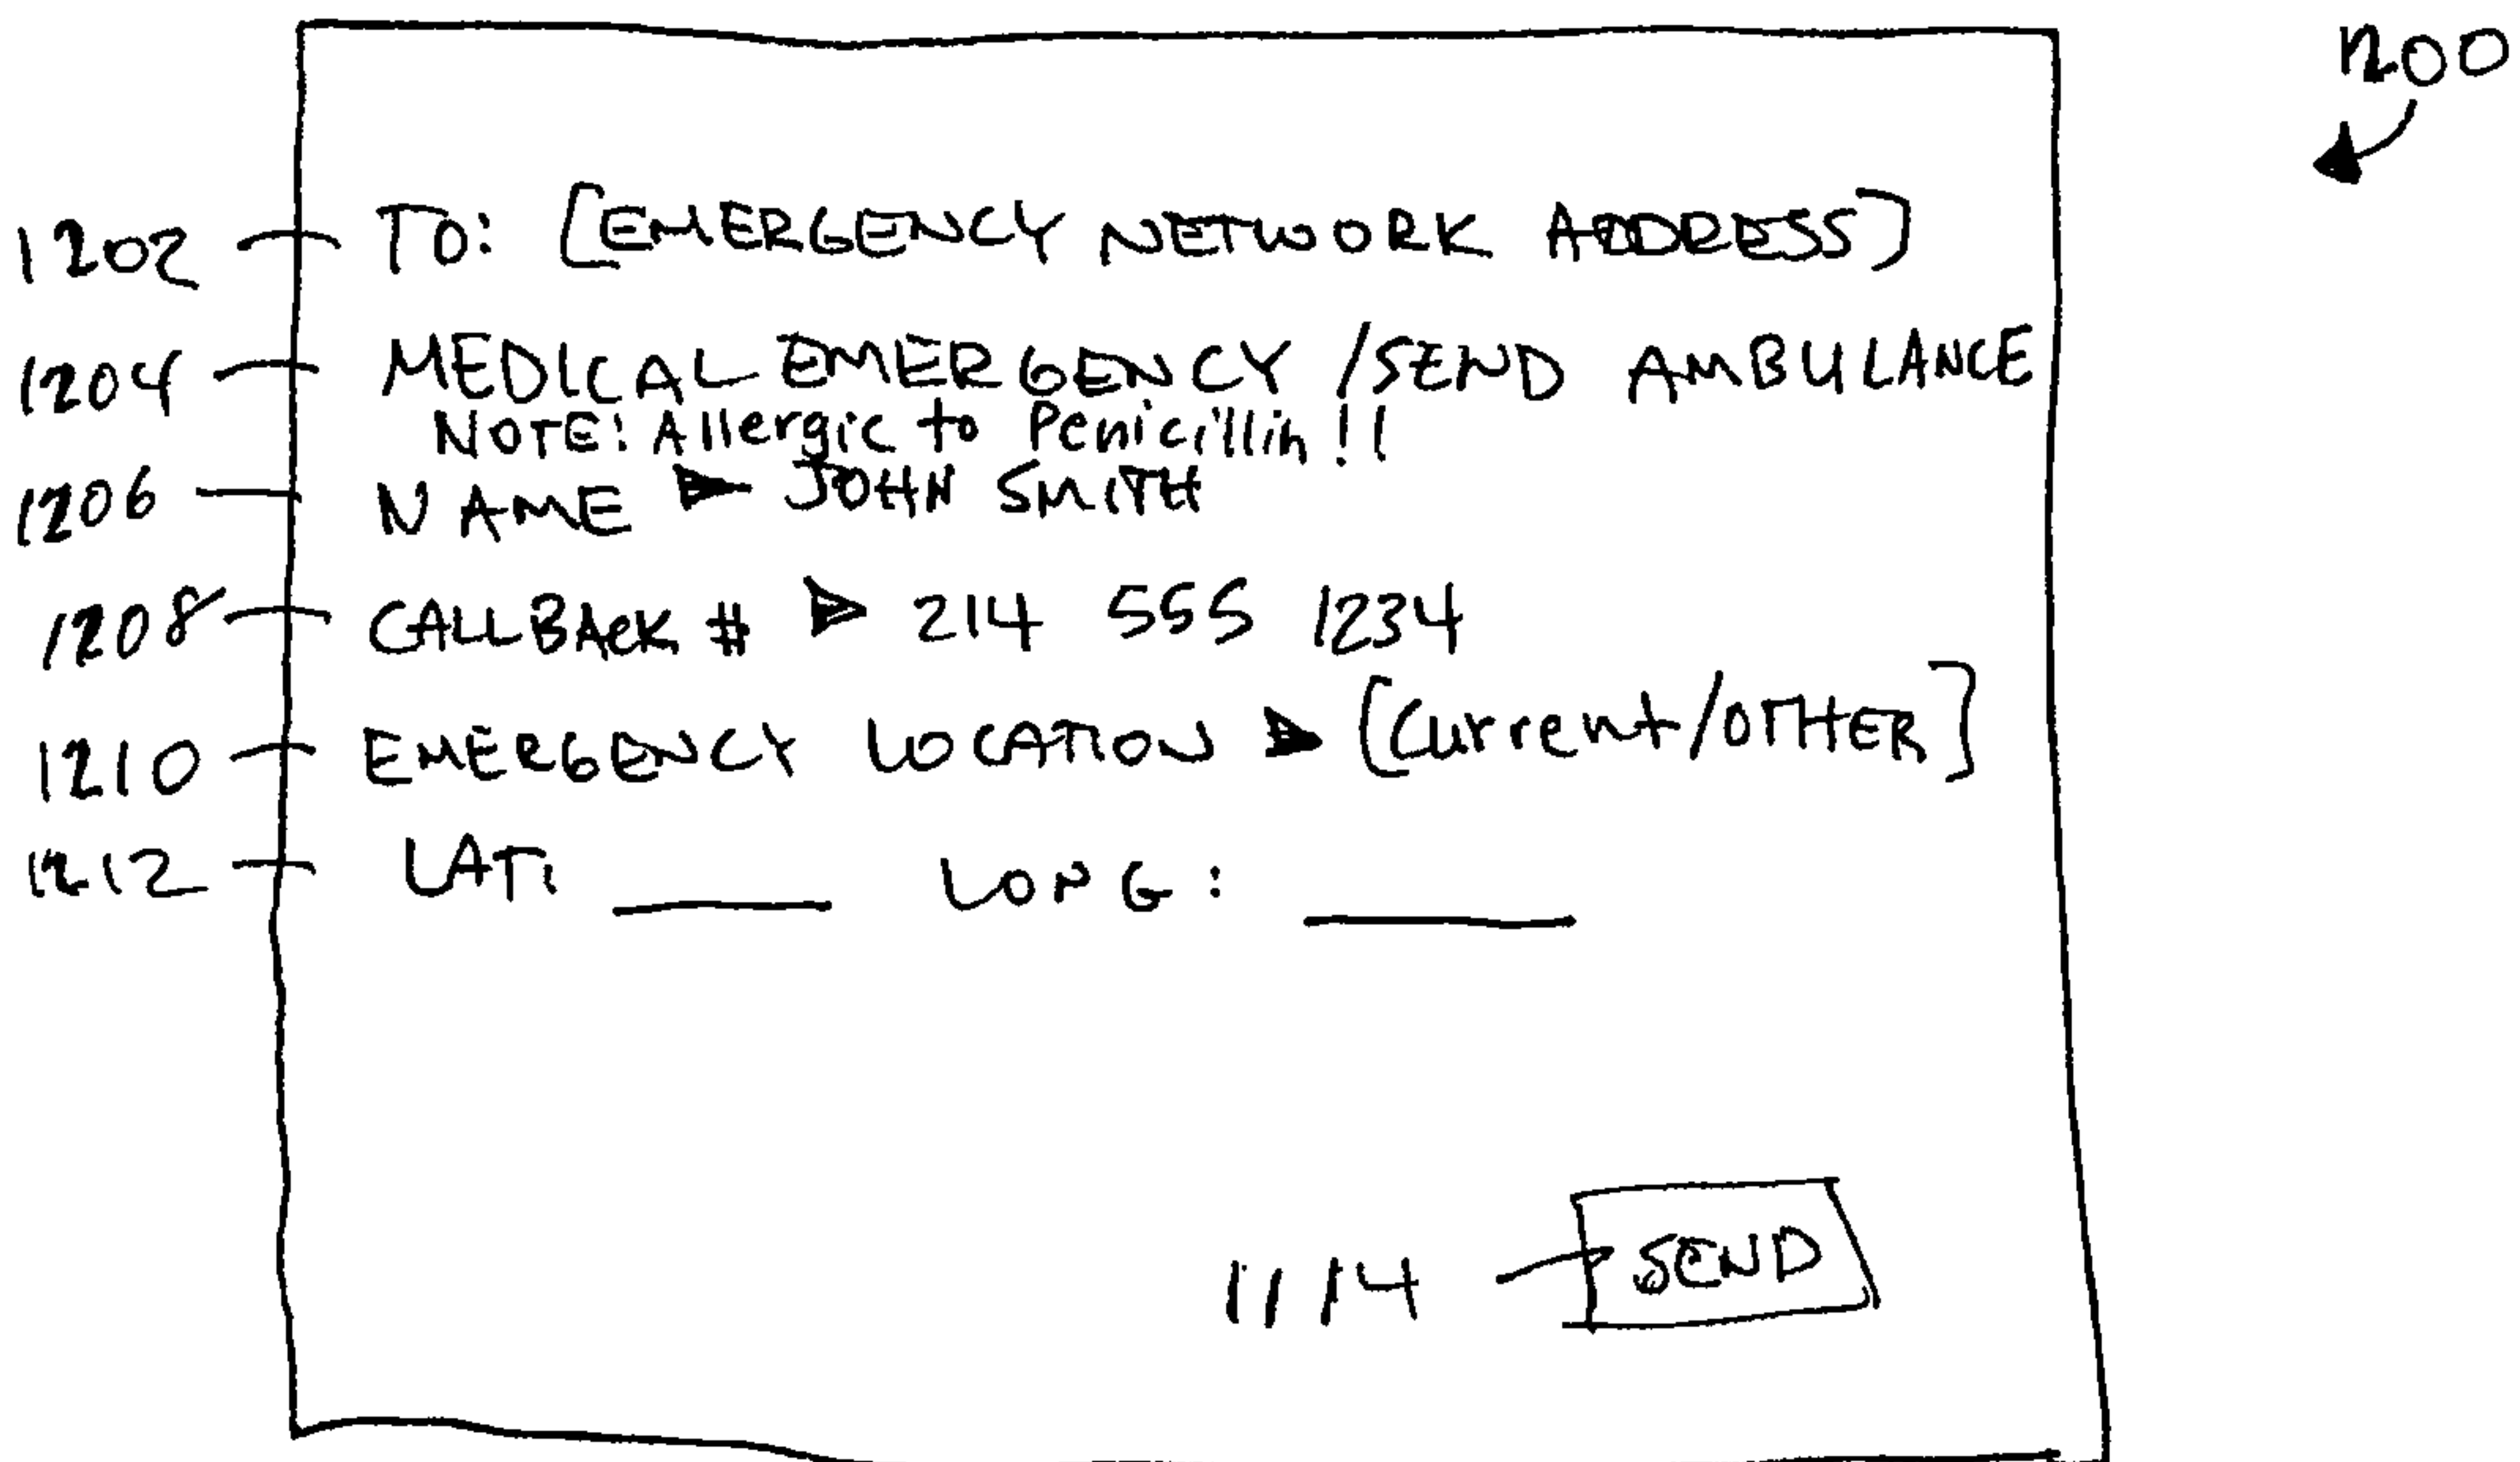 1200
1202 TO: [EMERGENCY NETWORK ADDRESS]
1204 MEDICAL EMERGENCY /SEND AMBULANCE
NOTE: Allergic to Penicillin!!
1206 NAME ▶ JOHN SMITH
1208 CALLBACK # ▶ 214 555 1234
1210 EMERGENCY LOCATION ▶ [Current/OTHER]
1212 LAT: ____ LONG: ____
1114 SEND